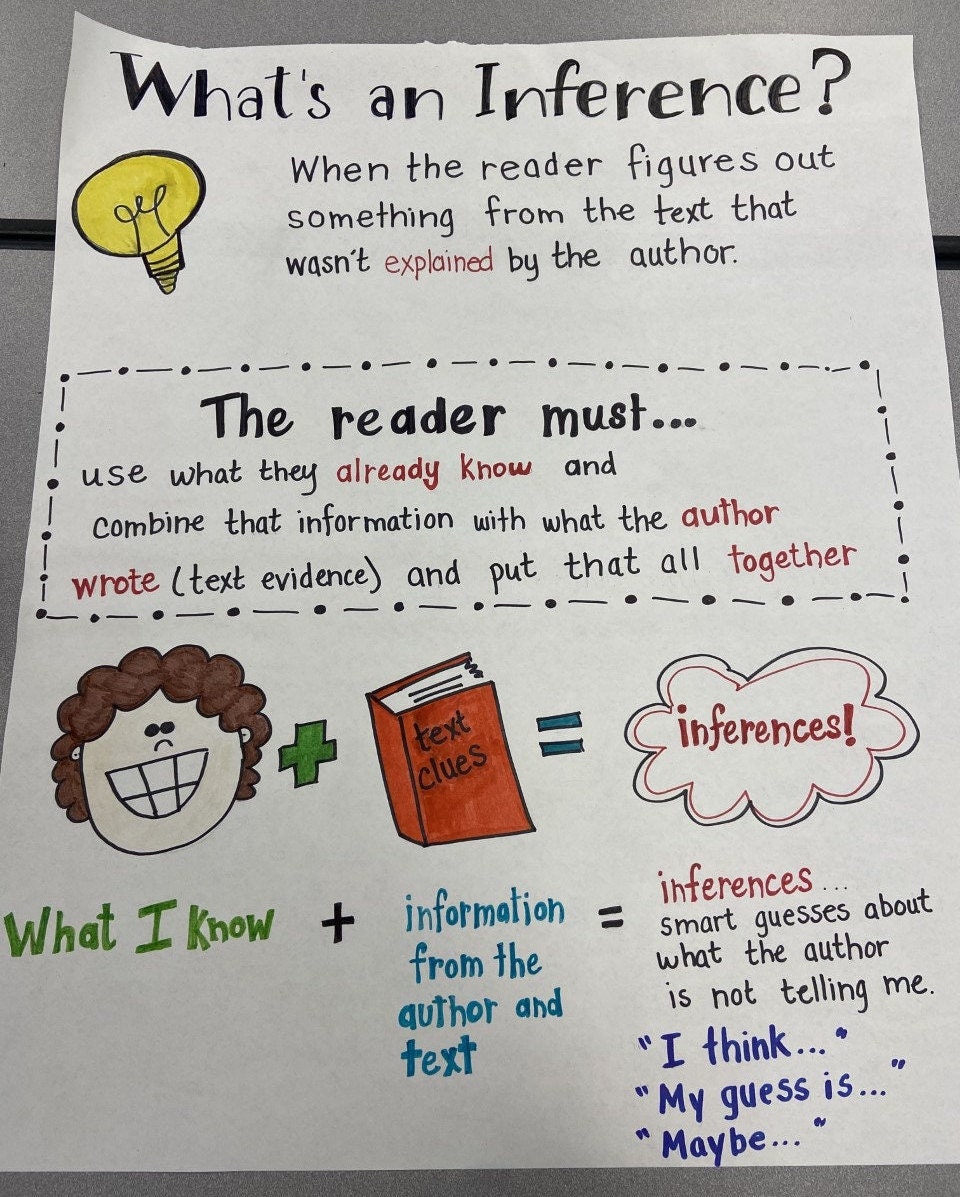 What's an Inference?
When the reader figures out
something from the text that
wasn't explained by the author.
The reader must...
use what they already know and
combine that information with what the author
wrote (text evidence) and put that all together
+
text
clues
=
inferences!
What I Know + information
from the
author and
text
= inferences...
smart guesses about
what the author
is not telling me.
"I think..."
"My guess is..."
"Maybe..."